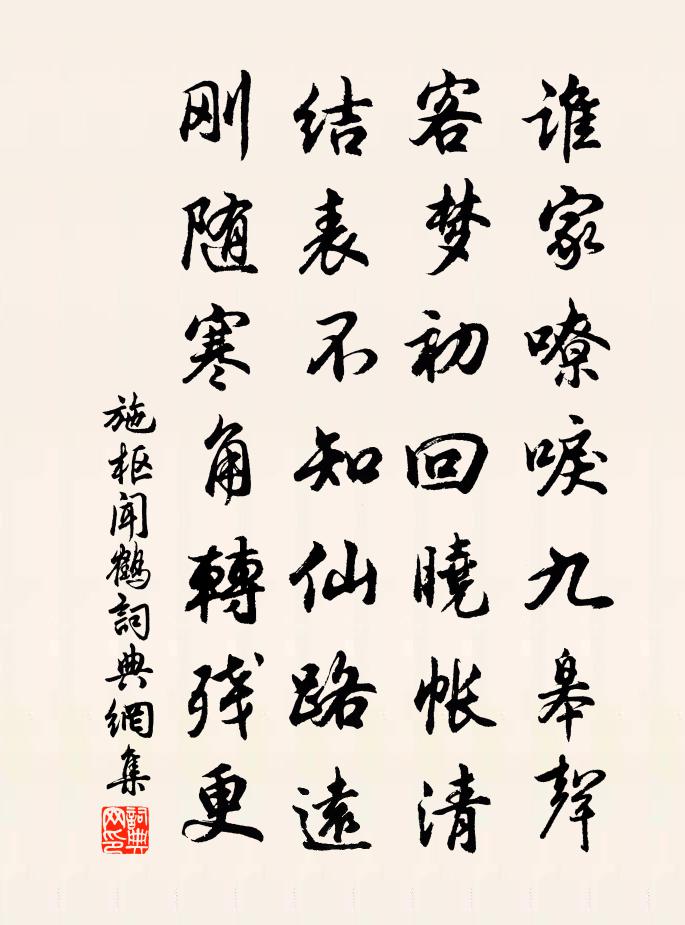 谁家嘹唳九皋聲
客梦初回曉帐清
结表不知仙路遠
刚随寒角轉残更
施枢闻鹤詞典網集
詞典网印